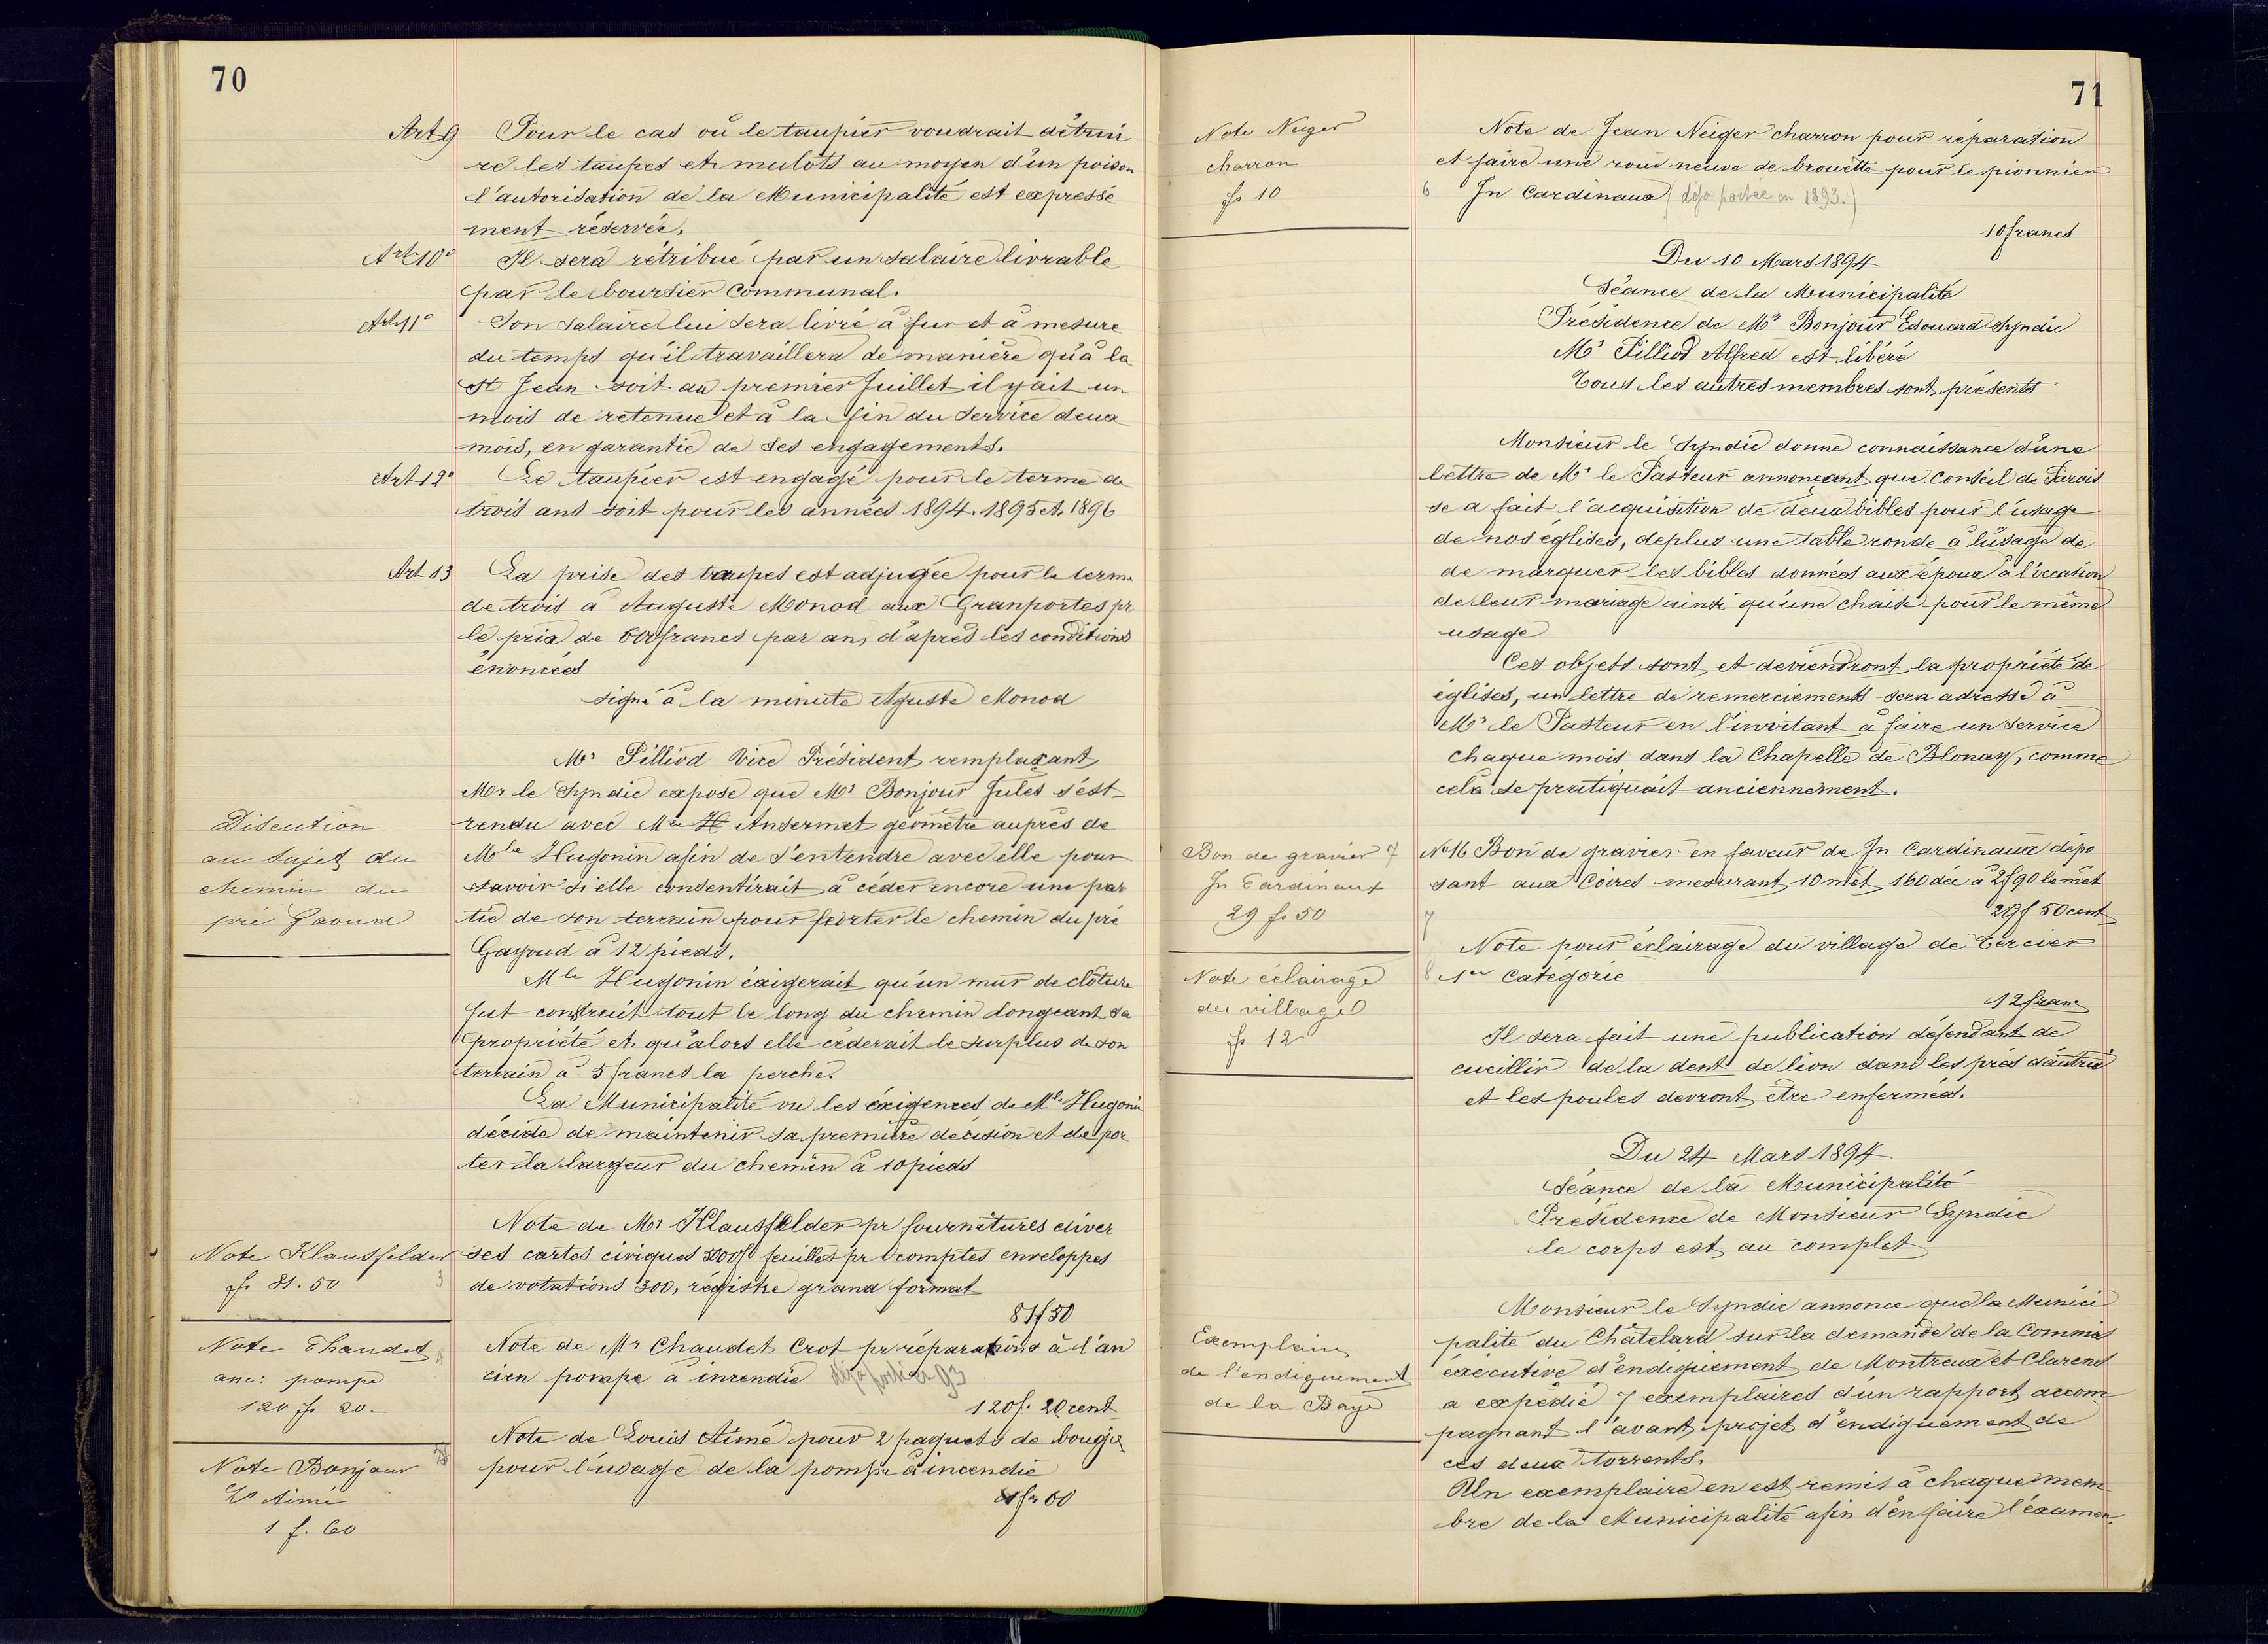 70
Art 9 Pour le cas où le taupier voudrait détrui
re les taupes et mulots au moyen d'un poison
l'autorisation de la Municipalité est expressé
ment réservée.
Art 10° Il sera rétribué par un salaire livrable
par le boursier Communal.
Art 11° Son salaire lui sera livré à fur et à mesure
du temps qu'il travaillera de manière qu'à la
St Jean soit au premier Juillet il y ait un
mois de retenue et à la fin du service deux
mois, en garantie de ses engagements.
Art 12° Le taupier est engagé pour le terme de
trois ans soit pour les années 1894. 1895 et 1896
Art 13 La prise des taupes est adjugée pour le terme
de trois à Auguste Monod aux Granportes pr
le prix de 600 francs par an, d'après les conditions
énoncées
signé à la minute Aguste Monod
Mr Pilliod Vice Président remplaçant
Mr le Syndic expose que Mr Bonjour Jules s'est
Discution
au sujet du
chemin du
pré Gaoud
rendu avec Mr H Ansermet géomètre auprès de
Mlle Hugonin afin de s'entendre avec elle pour
savoir si elle consentirait à céder encore une par
tie de son terrain pour porter le chemin du pré
Gayoud à 12 pieds.
Mlle Hugonin éxigerait qu'un mur de clôture
fut construit tout le long du chemin longeant sa
propriété et qu'alors elle céderait le surplus de son
terrain à 5 francs la perche.
La Municipalité vu les éxigences de Mlle Hugonin
décide de maintenir sa première décision et de por
ter la largeur du chemin à 10 pieds
Note Klausfelder
fr 81.50
3
Note de Mr Klausfelder pr fournitures diver
ses cartes civiques 500 feuilles pr comptes enveloppes
de votations 300, régistre grand format
81f50
Note Chaudet
anc: pompe
120 fr 20-
Note de Mr Chaudet Crot pr réparations à l'an
cien pompe à incendie déjà portée en 93
120f. 20 cent
Note Bonjour
Ls Aimé
1 f. 60
Note de Louis Aimé pour 2 paquets de bougie
pour l'usage de la pompe à incendie
1 fr 60
71
Note Neiger
charron
fr 10
Note de Jean Neiger charron pour réparation
et faire une roue neuve de brouette pour le pionnier
6 Jn Cardinaux (déjà portée en 1893.)
10 francs
Du 10 Mars 1894
Séance de la Municipalité
Présidence de Mr Bonjour Edouard Syndic
Mr Pilliod Alfred est libéré
Tous les autres membres sont présents
Monsieur le Syndic donne connaissance d'une
lettre de Mr le Pasteur annonçant que Conseil de Parois
se a fait l'acquisition de deux bibles pour l'usage
de nos églises, deplus une table ronde à l'usage de
de marquer les bibles données aux époux à l'occasion
de leur mariage ainsi qu'une chaise pour le même
usage
Ces objets sont, et deviendront la propriété de
églises, un lettre de remerciements sera adressé à
Mr le Pasteur en l'invitant à faire un service
chaque mois dans la Chapelle de Blonay, comme
celà se pratiquait anciennement.
Bon de gravier 7
Jn Cardinaux
29 fr 50
No 16 Bon de gravier en faveur de Jn Cardinaux dépo
sant aux Coires mesurant 10 mèt 160 dec à 2f90 le mèt
29f 50 cent
7
Note éclairage
du village
fr 12
Note pour éclairage du village de Tercier
8 1re Catégorie
12 franc
Il sera fait une publication défendant de
cueillir de la dent de lion dans les prés d'autrui
et les poules devront être enfermées.
Du 24 Mars 1894
Séance de la Municipalité
Présidence de Monsieur Syndic
le corps est au complet
Exemplaires
de l'endiguement
de la Baye
Monsieur le Syndic annonce que la Munici
palité du Châtelard sur la demande de la Commis
éxécutive d'endiguement de Montreux et Clarens
a expédié 7 exemplaires d'un rapport accom
pagnant l'avant projet d'endiguement de
ces deux torrents.
Un exemplaire en est remis à chaque mem
bre de la Municipalité afin d'en faire l'éxamen.